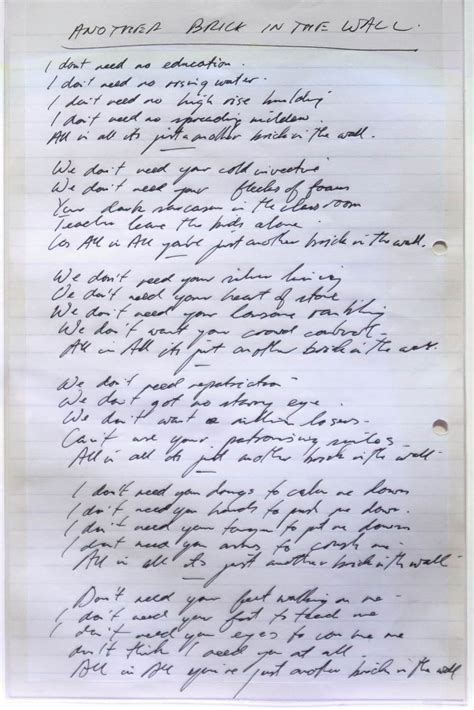 ANOTHER BRICK IN THE WALL.
I dont need no education.
I don't need no rising water.
I don't need no high rise building
I don't need no spreading mildew.
All in all its just another brick in the wall.
We don't need your cold invective
We don't need your flecks of foam
Your dark sarcasm in the classroom
Teacher leave the kids alone.
Cos All in All you're just another brick in the wall.
We don't need your silver lining
We don't need your heart of stone
We don't need your rambling
We don't want your crowd control-
All in All its just another brick in the wall.
We don't need
We don't got no starry eye.
We don't want
Can't use your patronising smiles-
All in all its just another brick in the wall-
I don't need your drugs to calm me down
I don't need your hands to push me down.
I don't need your tongue to put me down
I dont need your arms to crush me-
All in all its just another brick in the wall-
Don't need your feet walking on me-
I don't need your to teach me
I don't need your eyes to me
don't think I need you at all-
All in All you're just another brick in the wall